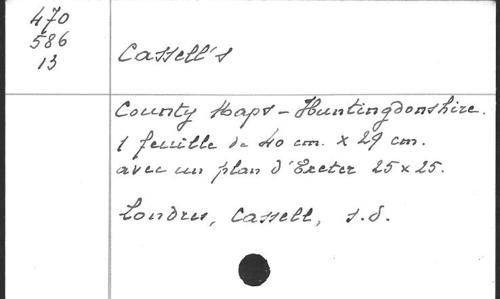 470
586
13
Cassell's
County Maps - Huntingdonshire.
1 feuille de 40 cm. x 29 cm.
avec un plan d'Exeter 25 x 25.
Londres, Cassell, s.d.